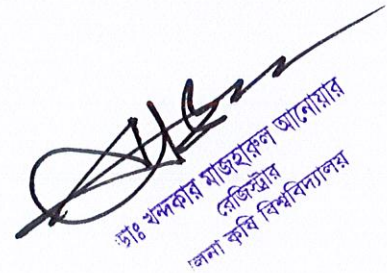 ডাঃ খন্দকার মাজহারুল আনোয়ার
রেজিস্ট্রার
কৃষি বিশ্ববিদ্যালয়